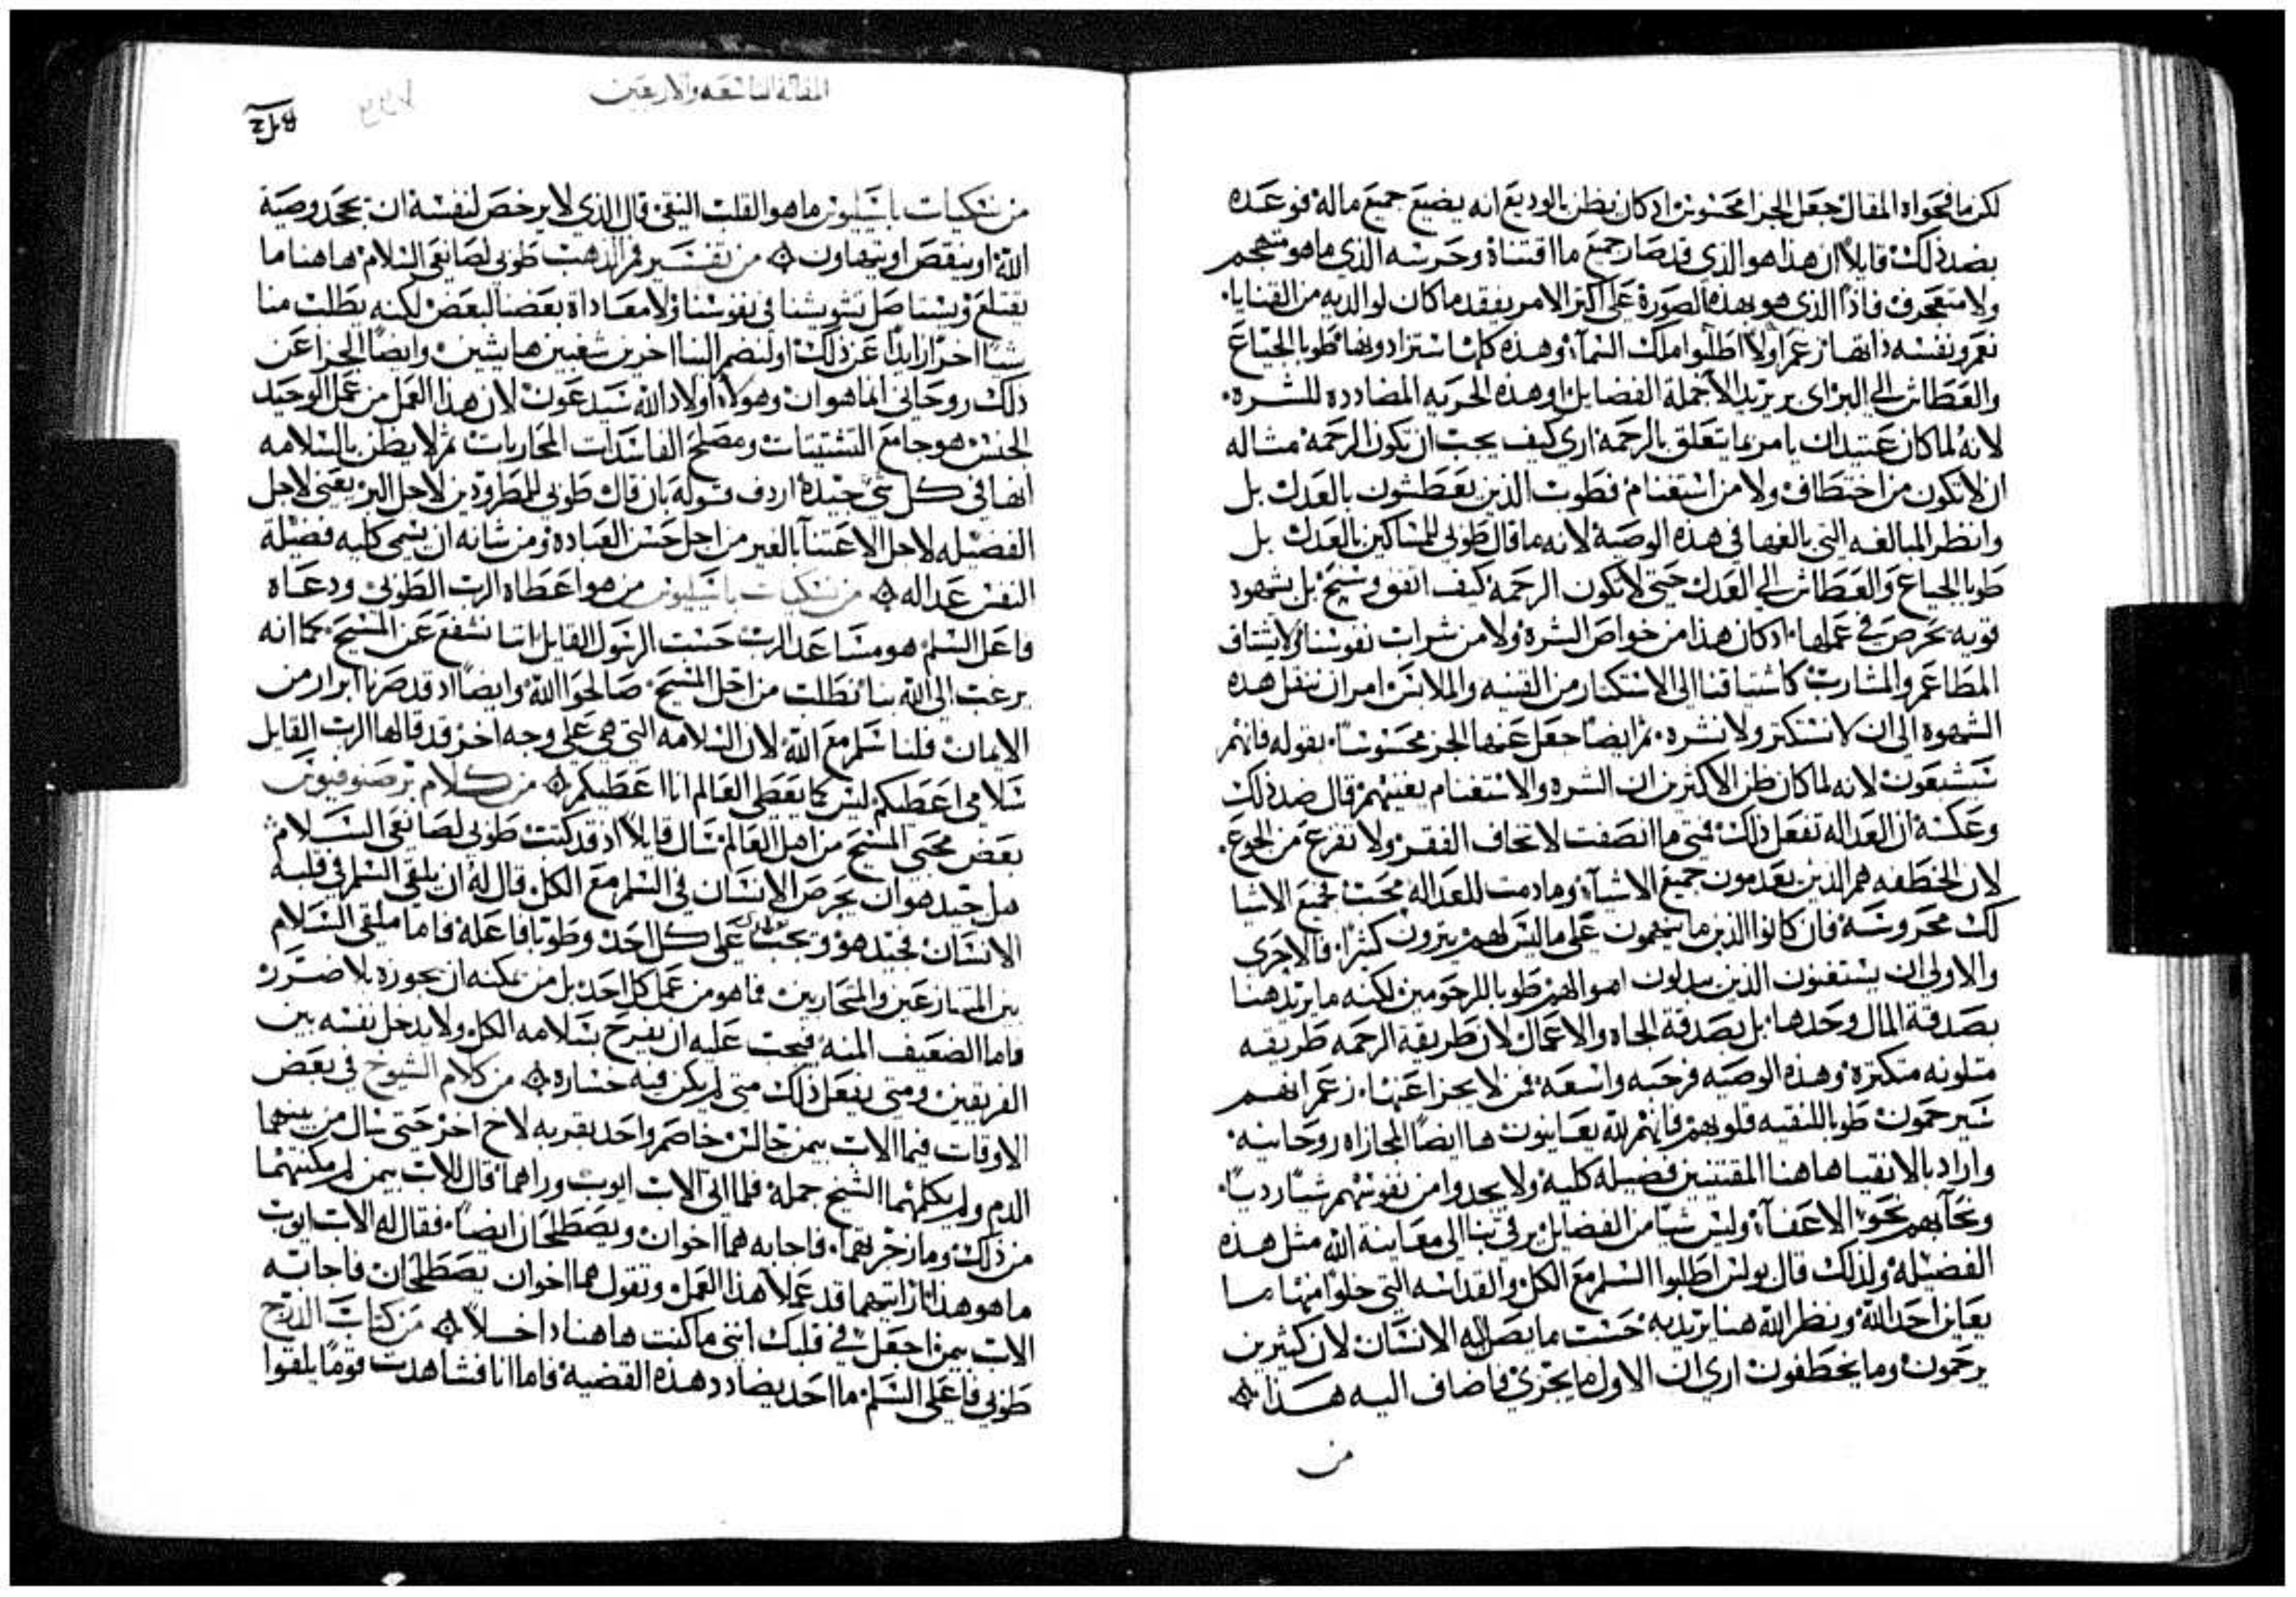 لكن ما فحواه المقال جعل الجزا محسوس اد كان يظن بالوديع انه يضيع جميع ماله فوعده
بضد ذلك قايلاً ان هذا هو الذي قد صار جميع ما اقتناه وحرسه الذي ما هو متهجم
ولا متعجرف فاذا الذي هو بهذه الصورة على اكثر الامر يفقد ما كان لوالديه من القنايا
نعم ونفسه ذاتها زعم اولا اطلبوا ملك السمآ وهذه كلها تستزادونها طوبا للجياع
والعطاش الي البر اي بر يريد الا جملة الفضايل او هذه الحريه المضادده للشره
لانه لما كان عتيدا ان يامر بما يتعلق بالرحمة اري كيف يجب ان تكون الرحمة مثاله
ان لا تكون من اختطاف ولا من استغنام فطوب الذين يعطشون بالعدل بل
وانظر المبالغه التي بالغها في هذه الوصية لانه ما قال طوبي للمساكين بالعدل بل
طوبا للجياع والعطاش الي العدل حتى لا تكون الرحمة كيف اتفق وسنح بل بشهوه
قويه نحرص في عملها اد كان هذا من خواص الشره ولا من شرات نفوسنا ولا يشتاق
المطاعم والمشارب كاشتياقنا الى الاستكثار من القنيه والملابس امر ان ننقل هذه
الشهوه الى ان لا نستكثر ولا نشره ثم ايضا جعل عنها الجز محسوسا بقوله فانهم
سيشبعون لانه لما كان ظن الاكثرين ان الشره والاستغنام يغنيهم قال ضد ذلك
وعكسه ان العداله تفعل ذلك فمتى ما انصفت لا تخاف الفقر ولا تفزع من الجوع
لان الخطفه هم الذين يعدمون جميع الاشيآ وما دمت للعداله محب لجميع الاشيا
لك محروسة فان كانوا الذين ما يتهمون على ما ليس لهم يترون كثيرا فالاحرى
والاولي ان يستغنون الذين يبدلون اموالهم طوبا للرحومين لكنه ما يريد هنا
بصدقة المال وحدها بل بصدقة الجاه والاعمال لان طريقة الرحمه طريقه
متلونه متكثرة وهذه الوصيه فرحبه واسعة فمن لا يجزا عنها زعم انهم
سيرحمون طوبا للنقيه قلوبهم فانهم لله يعاينون ها ايضا المجازاه روحانيه
واراد بالانقيا هاهنا المقتنين فضيلة كلية ولا يجدوا من نفوسهم شيا رديا
ونحا بهم نحو الاعفآ وليس شيا من الفضايل يرقي بنا الى معاينة الله مثل هذه
الفضيله ولذلك قال بولس اطلبوا السلم مع الكل والقداسه التي خلوا منها ما
يعاين احد الله ونظر الله هنا يريد به حسب ما يصل اليه الانسان لان كثيرين
يرحمون وما يخطفون اري ان الاول ما يجزي فاضاف اليه هذا
من
المقالة التاسعه والاربعين
من نسكيات باسيليوس ما هو القلب النقي قال الذي لا يرخص لنفسه ان تجحد وصية
الله او ينقص او يتهاون من تفسير فم الذهب طوبي لصانعي السلام هاهنا ما
يقتلع ويستاصل تشويشنا في نفوسنا ولا معاداة بعضا لبعض لكنه يطلب منا
شيا اخر ازايدا عن ذلك اولنضم الينا اخرين شغبين هايشين وايضا الجزا عن
ذلك روحاني انما هو ان وهولا اولاد الله سيدعون لان هذا العمل من عمل الوحيد
الجنس هو جامع التشتيتات ومصلح الفاسدات المحاربات ثم لا يظن بالسلامه
انها في كل شي جيدة اردف قوله بان قال طوبي للمطرودين لاجل البر يعني لاجل
الفضيله لاجل الاعتنآ بالغير من اجل حسن العباده ومن شانه ان يسمي كليه فضيلة
النفس عداله من نسكيات باسيليوس من هو اعطاه الرب الطوبي ودعاه
فاعل السلم هو مساعد الرب حسب الرسول القايل اننا نشفع عن المسيح كما انه
يرغب الى الله بنا نطلب من اجل المسيح صالحوا الله وايضا اد قد صرنا ابرار من
الايمان فلنا سلم مع الله لان السلامه التي هي على وجه اخر قد قالها الرب القايل
سلامي اعطيكم ليس كما يعطي العالم انا اعطيكم من كلام برصنوفيوس
بعض محبي المسيح من اهل العالم سال قايلاً اد قد كتب طوبي لصانعي السلام
هل جيد هو ان يحرص الانسان في السلم مع الكل قال له ان يلقي السلم في قلبه
الانسان فجيد هو ويجب على كل احد وطوبا فاعله فاما ملقي السلام
بين المتنازعين والمتحاربين فما هو من عمل كل احد بل من يمكنه ان يجوزه بلا ضرر
فاما الضعيف المنه فيجب عليه ان يفرح بسلامه الكل ولا يدخل نفسه بين
الفريقين ومتى يفعل ذلك متى لم يكن فيه خساره من كلام الشيوخ في بعض
الاوقات فيما الاب بيمن جالس خاصم واحد بقربه لاخ اخر حتى سال من بينهما
الدم ولم يكلمهما الشيخ جملة فلما اتي الاب ايوب وراهما قال للاب بيمن لم مكنتهما
من ذلك وما زجرتهما فاجابه هما اخوان ويصطلحان ايضا فقال له الاب ايوب
ما هو هذا رايتهما قد عملا هذا العمل وتقول هما اخوان يصطلحان فاجابه
الاب بيمن اجعل في قلبك انني ما كنت هاهنا داخلا من كتاب الدرج
طوبي فاعلي السلم ما احد يضادد هذه القضية فاما انا فشاهدت قوما يلقوا